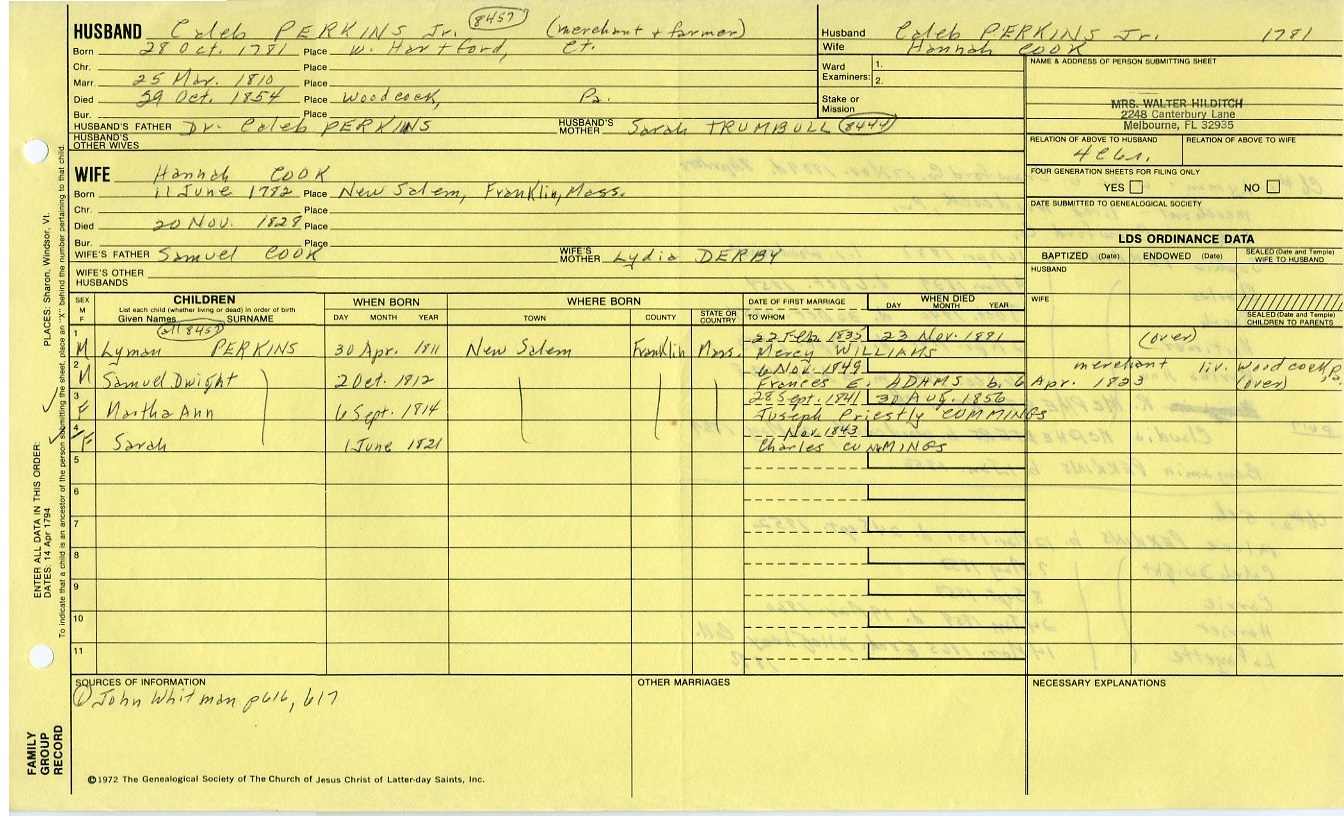 HUSBAND Caleb PERKINS Jr. 8457 (merchant + farmer)
Born 28 Oct. 1781 Place W. Hartford, Ct.
Chr. Place
Marr. 25 Mar. 1810 Place
Died 29 Oct. 1854 Place Woodcock, Pa.
Bur. Place
HUSBAND'S FATHER Dr. Caleb PERKINS HUSBAND'S MOTHER Sarah TRUMBULL 8444
HUSBAND'S OTHER WIVES
Husband Caleb PERKINS Jr. 1781
Wife Hannah COOK
Ward Examiners: 1.
2.
Stake or Mission
NAME & ADDRESS OF PERSON SUBMITTING SHEET
MRS. WALTER HILDITCH
2248 Canterbury Lane
Melbourne, FL 32935
RELATION OF ABOVE TO HUSBAND RELATION OF ABOVE TO WIFE
FOUR GENERATION SHEETS FOR FILING ONLY
YES NO
DATE SUBMITTED TO GENEALOGICAL SOCIETY
WIFE Hannah COOK
Born 11 June 1782 Place New Salem, Franklin, Mass.
Chr. Place
Died 20 Nov. 1828 Place
Bur. Place
WIFE'S FATHER Samuel COOK WIFE'S MOTHER Lydia DERBY
WIFE'S OTHER HUSBANDS
LDS ORDINANCE DATA
BAPTIZED (Date) ENDOWED (Date) SEALED (Date and Temple) WIFE TO HUSBAND
HUSBAND
WIFE
SEALED (Date and Temple) CHILDREN TO PARENTS
SEX M F
CHILDREN
List each child (whether living or dead) in order of birth
Given Names SURNAME
all 8457
WHEN BORN
DAY MONTH YEAR
WHERE BORN
TOWN COUNTY STATE OR COUNTRY
DATE OF FIRST MARRIAGE
TO WHOM
WHEN DIED
DAY MONTH YEAR
1 22 Feb. 1835 23 Nov. 1881 (over)
M Lyman PERKINS 30 Apr. 1811 New Salem Franklin Mass. Mercy WILLIAMS
2 6 Nov. 1849 merchant liv. Woodcock, Pa.
M Samuel Dwight 2 Oct. 1812 Frances E. ADAMS b. 6 Apr. 1823 (over)
3 28 Sept. 1841 30 Aug. 1856
F Martha Ann 6 Sept. 1814 Joseph Priestly CUMMINGS
4 Nov. 1843
F Sarah 1 June 1821 Charles CUMMINGS
5
6
7
8
9
10
11
SOURCES OF INFORMATION
① John Whitman p616, 617
OTHER MARRIAGES
NECESSARY EXPLANATIONS
©1972 The Genealogical Society of The Church of Jesus Christ of Latter-day Saints, Inc.
PLACES: Sharon, Windsor, Vt.
To indicate that a child is an ancestor of the person submitting the sheet, place an "X" behind the number pertaining to that child.
ENTER ALL DATA IN THIS ORDER:
DATES: 14 Apr 1794
FAMILY GROUP RECORD